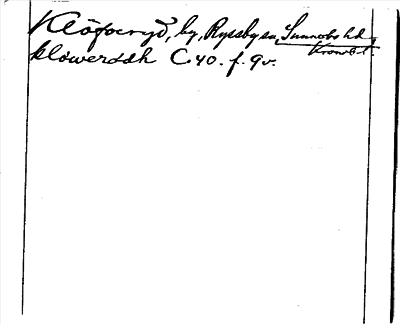 Klöfocryd, by, Ryssby sn, Sunnerbo hd
Kronob. l.
klöwerddh C 40. f. 9v.